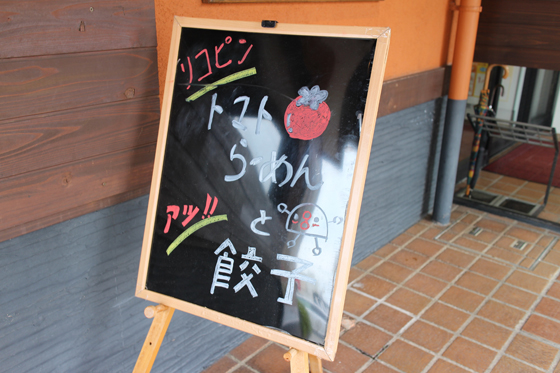 リコピン
トマト
らーめん
アツ!!
と
餃子